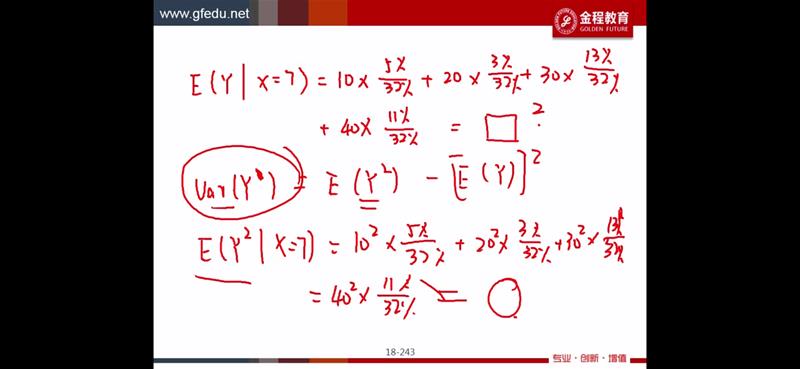 www.gfedu.net
金程教育
GOLDEN FUTURE
E(Y|X=7) = 10 × 5%/32% + 20 × 3%/32% + 30 × 13%/32%
+ 40 × 11%/32% = □ ²
Var(Y) = E(Y²) − [E(Y)]²
E(Y²|X=7) = 10² × 5%/32% + 20² × 3%/32% + 30² × 13%/32%
= 40² × 11%/32% = ○
18-243
专业·创新·增值